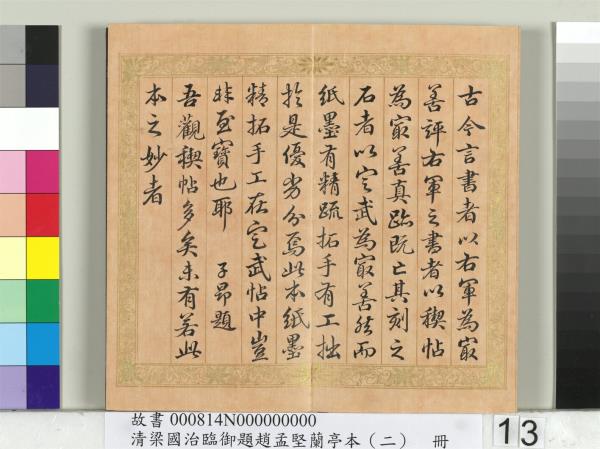 古今言書者以右軍為冣
善評右軍之書者以稧帖
為冣善真跡既亡其刻之
石者以定武為冣善然而
紙墨有精疏拓手有工拙
於是優劣分焉此本紙墨
精拓手工在定武帖中豈
非至寶也耶 子昂題
吾觀稧帖多矣未有若此
本之妙者
故書 000814N000000000
清梁國治臨御題趙孟堅蘭亭本（二） 冊
13